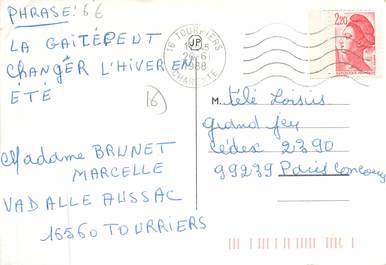 PHRASE: 66
LA GAITÉPEUT
CHANGER L'HIVER EN
ÉTÉ
16
Madame BRUNET
MARCELLE
VADALLE AUSSAC
16560 TOURRIERS
16 TOURRIERS
1988
CHARENTE
2,20
M. Télé Loisirs
grand jeu
Cédex 2390
99239 Paris Concours